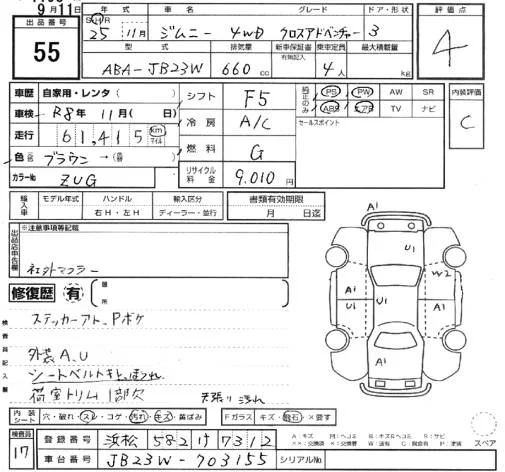 9月11日
出品番号
55
S・H・R 年式 車名 グレード ドア・形状 評価点
25 11月 ジムニー 4WD クロスアドベンチャー 3
4
型式 排気量 新車保証書 乗車定員 最大積載量
有無記入
ABA-JB23W 660 cc 4人 kg
車歴 自家用・レンタ( ) シフト F5 純正のみ PS PW AW SR 内装評価
ABS エアB TV ナビ
C
車検 R8年 11月( 日) 冷房 A/C セールスポイント
走行 61,415 km マイル
色 ブラウン →( ) 燃料 G
カラーNo ZUG リサイクル料金 9,010円
輸入車 モデル年式 ハンドル 輸入区分 書類有効期限
右H・左H ディーラー・並行 月 日迄
出品店申告欄 ※注意事項等記載
社外マフラー
修復歴 有 箇所
検査員記入欄
ステッカーアト、Pボケ
外装A、U
シートベルトキレ、ほつれ
荷室トリム1部欠
天張り汚れ
A1
U1
A1
W2
U1
U1
A1
A1
内装シート 穴・破れ・スレ・コゲ・汚れ・キズ・黄ばみ Fガラス キズ・飛石・×要す
A：キズ P：ヘコミ B：キズ&ヘコミ S：サビ
××：交換済 ×：交換要 W：波有 C：腐食有 P：塗装
スペア
検査員 17
登録番号 浜松 582 け 7312
車台番号 JB23W-703155 シリアルNo